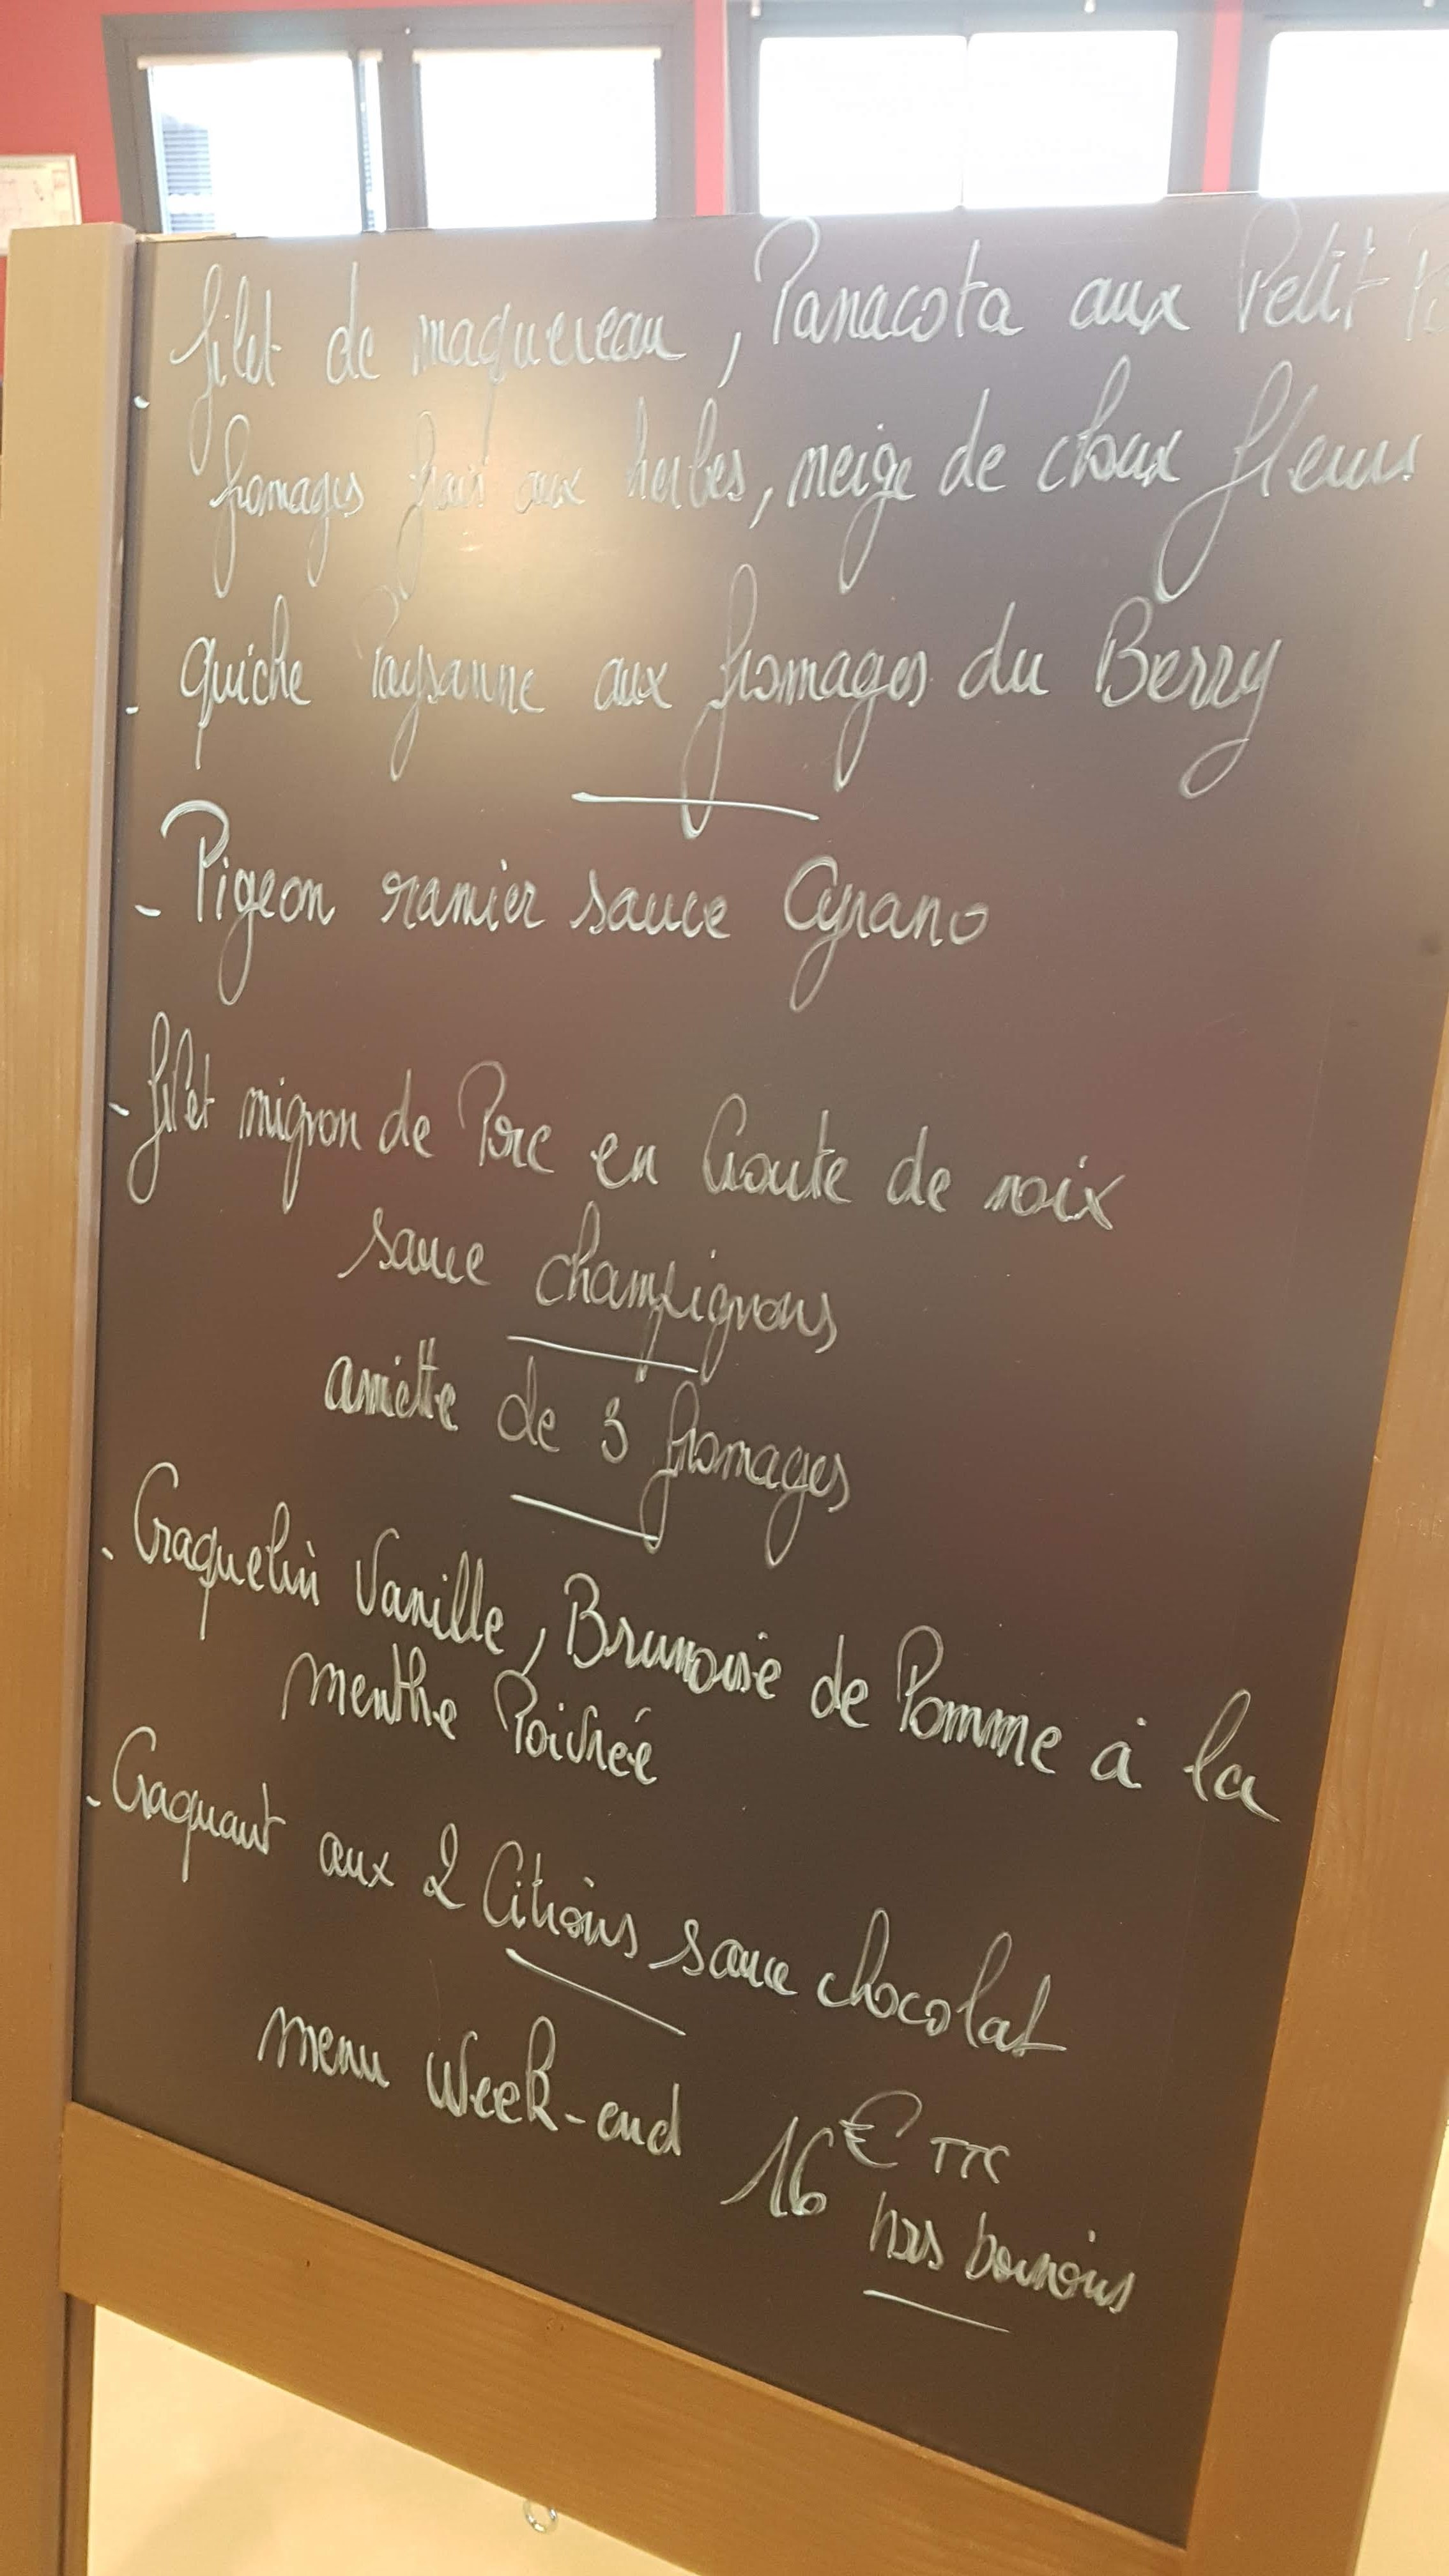 - filet de maquereau, Panacota aux Petit
fromages frais aux herbes, neige de choux fleurs
- quiche Paysanne aux fromages du Berry
- Pigeon ramier sauce Cyrano
- filet mignon de Porc en Croute de noix
sauce champignons
assiette de 3 fromages
- Craquelin Vanille, Brunoise de Pomme à la
menthe Poivrée
- Craquant aux 2 Citrons sauce chocolat
menu Week-end 16€ TTC
hors boissons